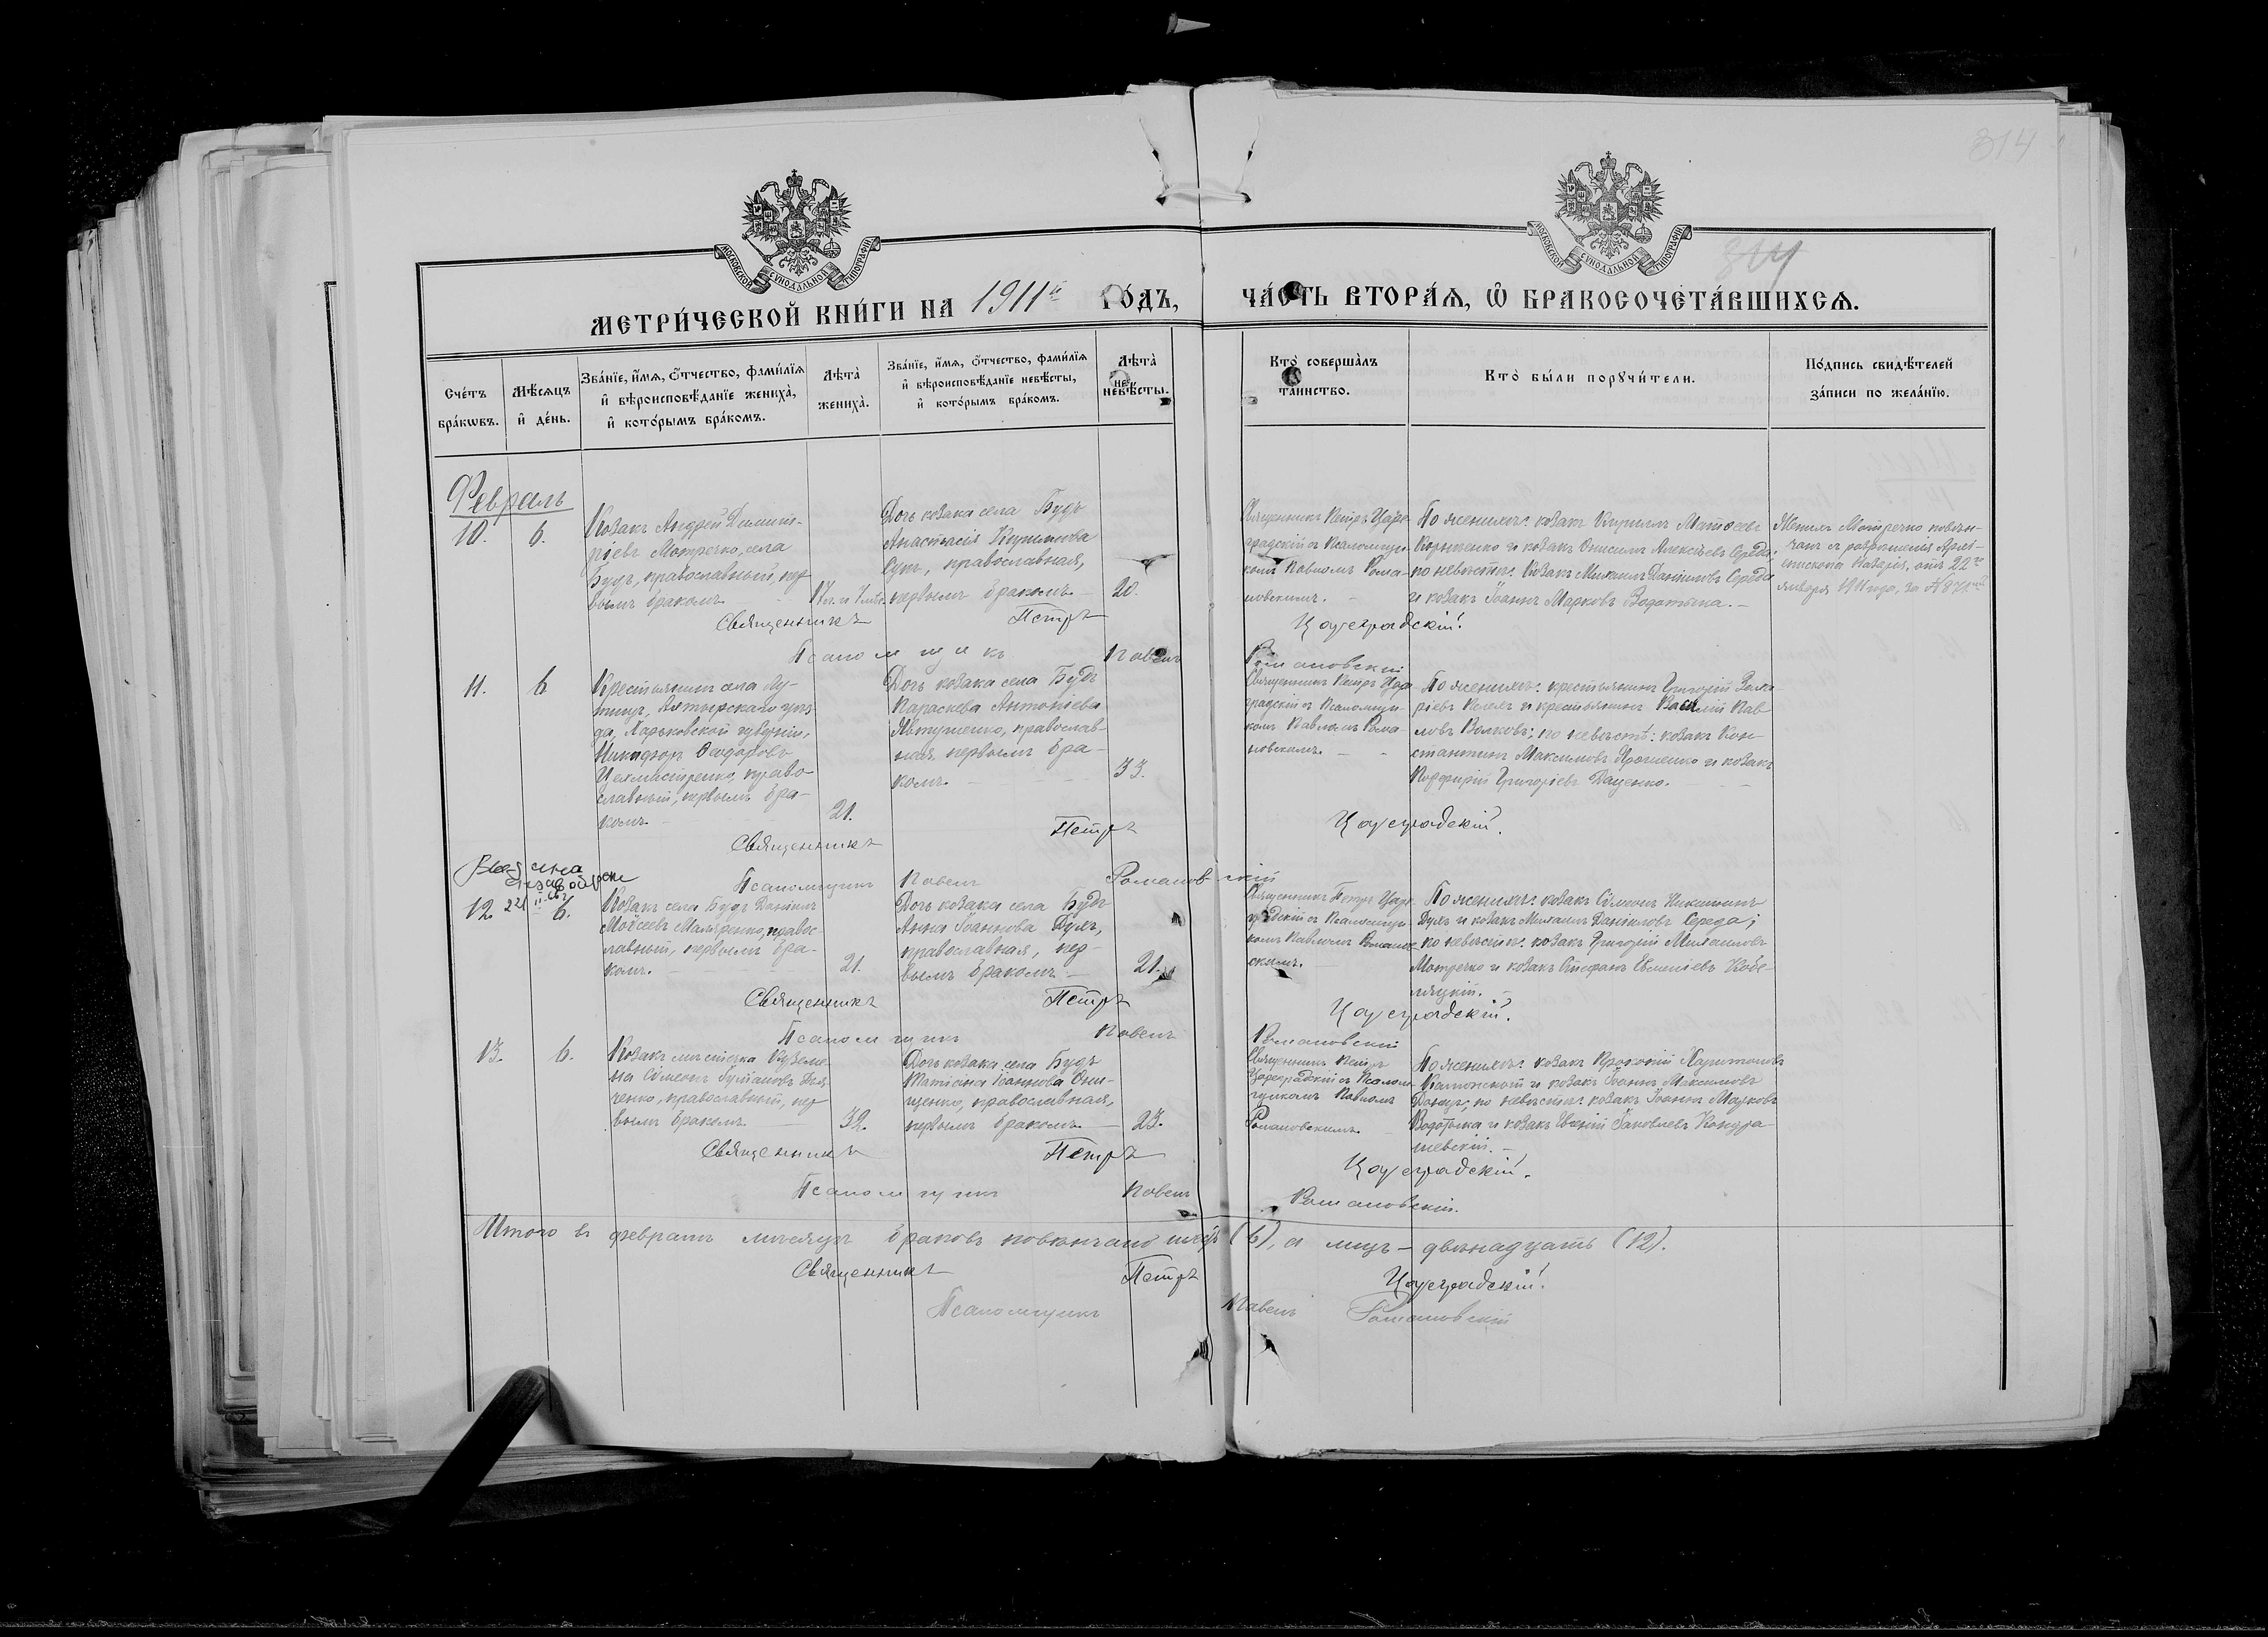 314
МОСКОВСКОЙ СѴНОДАЛЬНОЙ ТИПОГРАФИИ
МОСКОВСКОЙ СѴНОДАЛЬНОЙ ТИПОГРАФИИ
314
МЕТРИ́ЧЕСКОЙ КНИ́ГИ НА 1911й ГО́ДЪ,
ЧА́СТЬ ВТОРА́Ѧ, Ѽ БРАКОСОЧЕТА́ВШИХСѦ.
Сче́тъ бра́кѡвъ.
Мѣ́сѧцъ и҆ де́нь.
Зва́нїе, и҆́мѧ, ѻ҆́тчество, фами́лїѧ
и҆ вѣроисповѣ́данїе жениха̀,
и҆ кото́рымъ бра́комъ.
Лѣ́та̀ жениха̀.
Зва́нїе, и҆́мѧ, ѻ҆́тчество, фами́лїѧ
и҆ вѣроисповѣ́данїе невѣ́сты,
и҆ кото́рымъ бра́комъ.
Лѣ́та̀ невѣ́сты.
Кто̀ соверша́лъ
таинство.
Кто̀ бы́ли порꙋчи́тели.
По́дпись свидѣ́телей
за́писи по жела́нїю.
Февраль
10.
6.
Козакъ Андрей Димит-
ріевъ Мотречко, села
Будъ, православный, пер
вымъ бракомъ.
Дочь козака села Будъ
Анастасія
православная,
первымъ бракомъ.
20.
Священникъ Петръ Царе-
градскій съ псаломщи-
комъ Павломъ Рома-
новскимъ.
По женихѣ: козакъ Кириллъ Матѳеевъ
и козакъ Онисимъ Алексѣевъ Середа;
по невѣстѣ: козакъ Михаилъ Даніиловъ Середа
и козакъ Іоаннъ Марковъ Водотыка.
Женихъ Мотречко повѣн-
чанъ съ разрѣшенія Архі-
епископа Назарія, отъ 22го
января 1911 года, за №
Священникъ Петръ Цареградскій.
Псаломщикъ Павелъ Романовскій
11.
6.
Крестьянинъ села Лу-
тищъ, Ахтырскаго уѣз
да, Харьковской губерніи,
Никифоръ Ѳеодоровъ
Цехмистренко, право-
славный, первымъ бра-
комъ.
21.
Дочь козака села Будъ
Параскева Антоніева
Явтушенко, православ-
ная, первымъ бра-
комъ.
33.
Священникъ Петръ Царе
градскій съ псаломщи-
комъ Павломъ Рома-
новскимъ.
По женихѣ: крестьянинъ Григорій Заха-
ріевъ и крестьянинъ Василій Пав
ловъ Волковъ; по невѣстѣ: козакъ Кон-
стантинъ Максимовъ Ярошенко и козакъ
Порфирій Григоріевъ Даценко.
Священникъ Петръ Цареградскій.
Псаломщикъ Павелъ Романовскій
12.
6.
Козакъ села Будъ Даніилъ
Моѵсеевъ Маляренко, правос-
лавный, первымъ бра-
комъ.
21.
Дочь козака села Будъ
Анна Іоаннова Дуля,
православная, пер-
вымъ бракомъ
21.
Священникъ Петръ Царе-
градскій съ псаломщи-
комъ Павломъ Романов
скимъ.
По женихѣ: козакъ Сѵмеонъ Никитинъ
Дуля и козакъ Михаилъ Даніиловъ Середа;
по невѣстѣ: козакъ Григорій Михаиловъ
Мотречко и козакъ Стефанъ Евменіевъ Кобе-
ляцкій.
Священникъ Петръ Цареградскій.
Псаломщикъ Павелъ Романовскій
13.
6.
Козакъ мѣстечка Куземи-
на Сѵмеонъ
православный, пер
вымъ бракомъ.
32.
Дочь козака села Будъ
Татіана Іоаннова Они-
щенко, православная,
первымъ бракомъ.
23.
Священникъ Петръ
Цареградскій съ псалом-
щикомъ Павломъ
Романовскимъ.
По женихѣ: козакъ Прокопій Харитоновъ
и козакъ Іоаннъ Максимовъ
Донецъ; по невѣстѣ: козакъ Іоаннъ Марковъ
Водотыка и козакъ Іаковлевъ Кондра-
шевскій.
Священникъ Петръ Цареградскій.
Псаломщикъ Павелъ Романовскій.
Итого въ февралѣ мѣсяцѣ браковъ повѣнчано шесть (6), а лицъ – двѣнадцать (12).
Священникъ Петръ Цареградскій.
Псаломщикъ Павелъ Романовскій